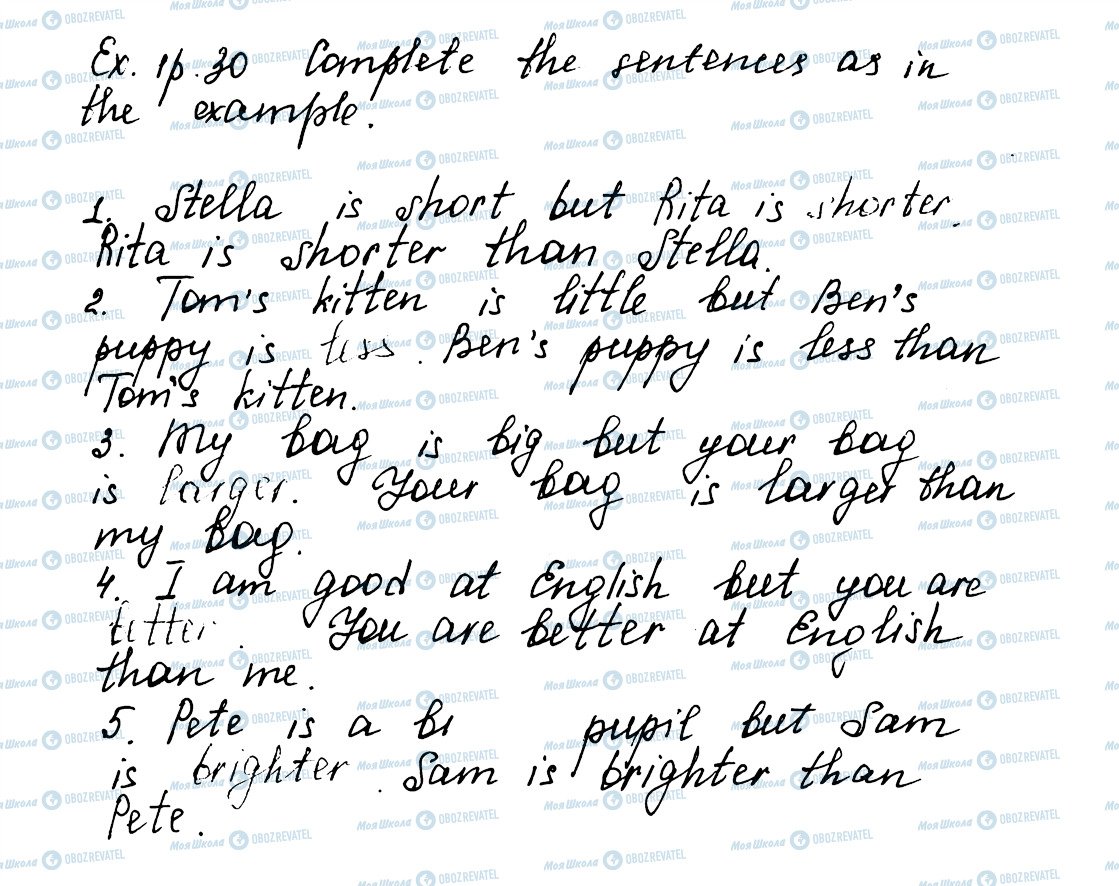 Ex. 1 p. 30 Complete the sentences as in
the example.
1. Stella is short but Rita is shorter.
Rita is shorter than Stella.
2. Tom's kitten is little but Ben's
puppy is less. Ben's puppy is less than
Tom's kitten.
3. My bag is big but your bag
is larger. Your bag is larger than
my bag.
4. I am good at English but you are
better. You are better at English
than me.
5. Pete is a pupil but Sam
is brighter. Sam is brighter than
Pete.